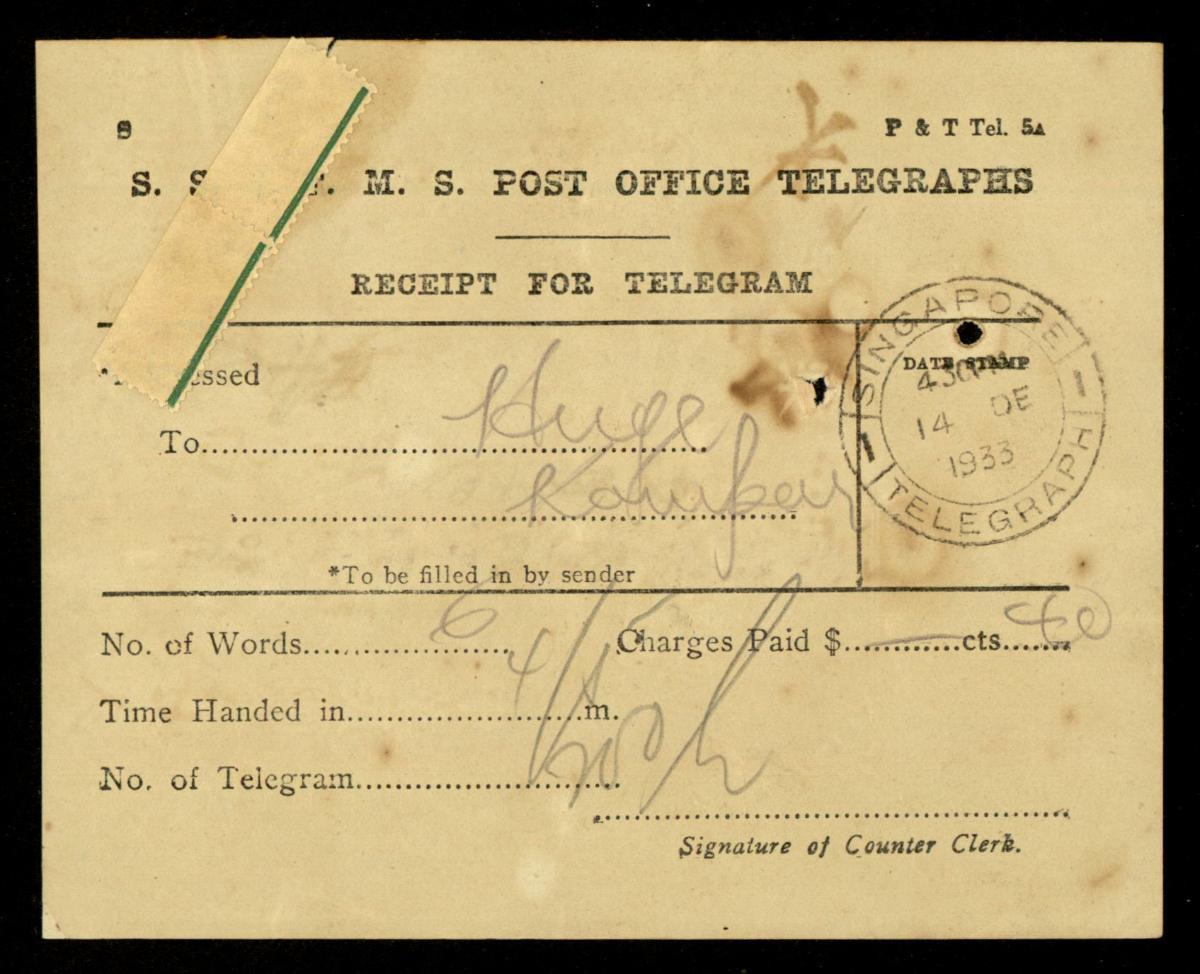 8
P & T Tel. 5A
S. S. F. M. S. POST OFFICE TELEGRAPHS
RECEIPT FOR TELEGRAM
SINGAPORE
DATE STAMP
430PM
14 DE
1933
TELEGRAPH
essed
To Huge
Kampar
*To be filled in by sender
No. of Words 6 Charges Paid $ — cts 40
Time Handed in m.
No. of Telegram
Signature of Counter Clerk.